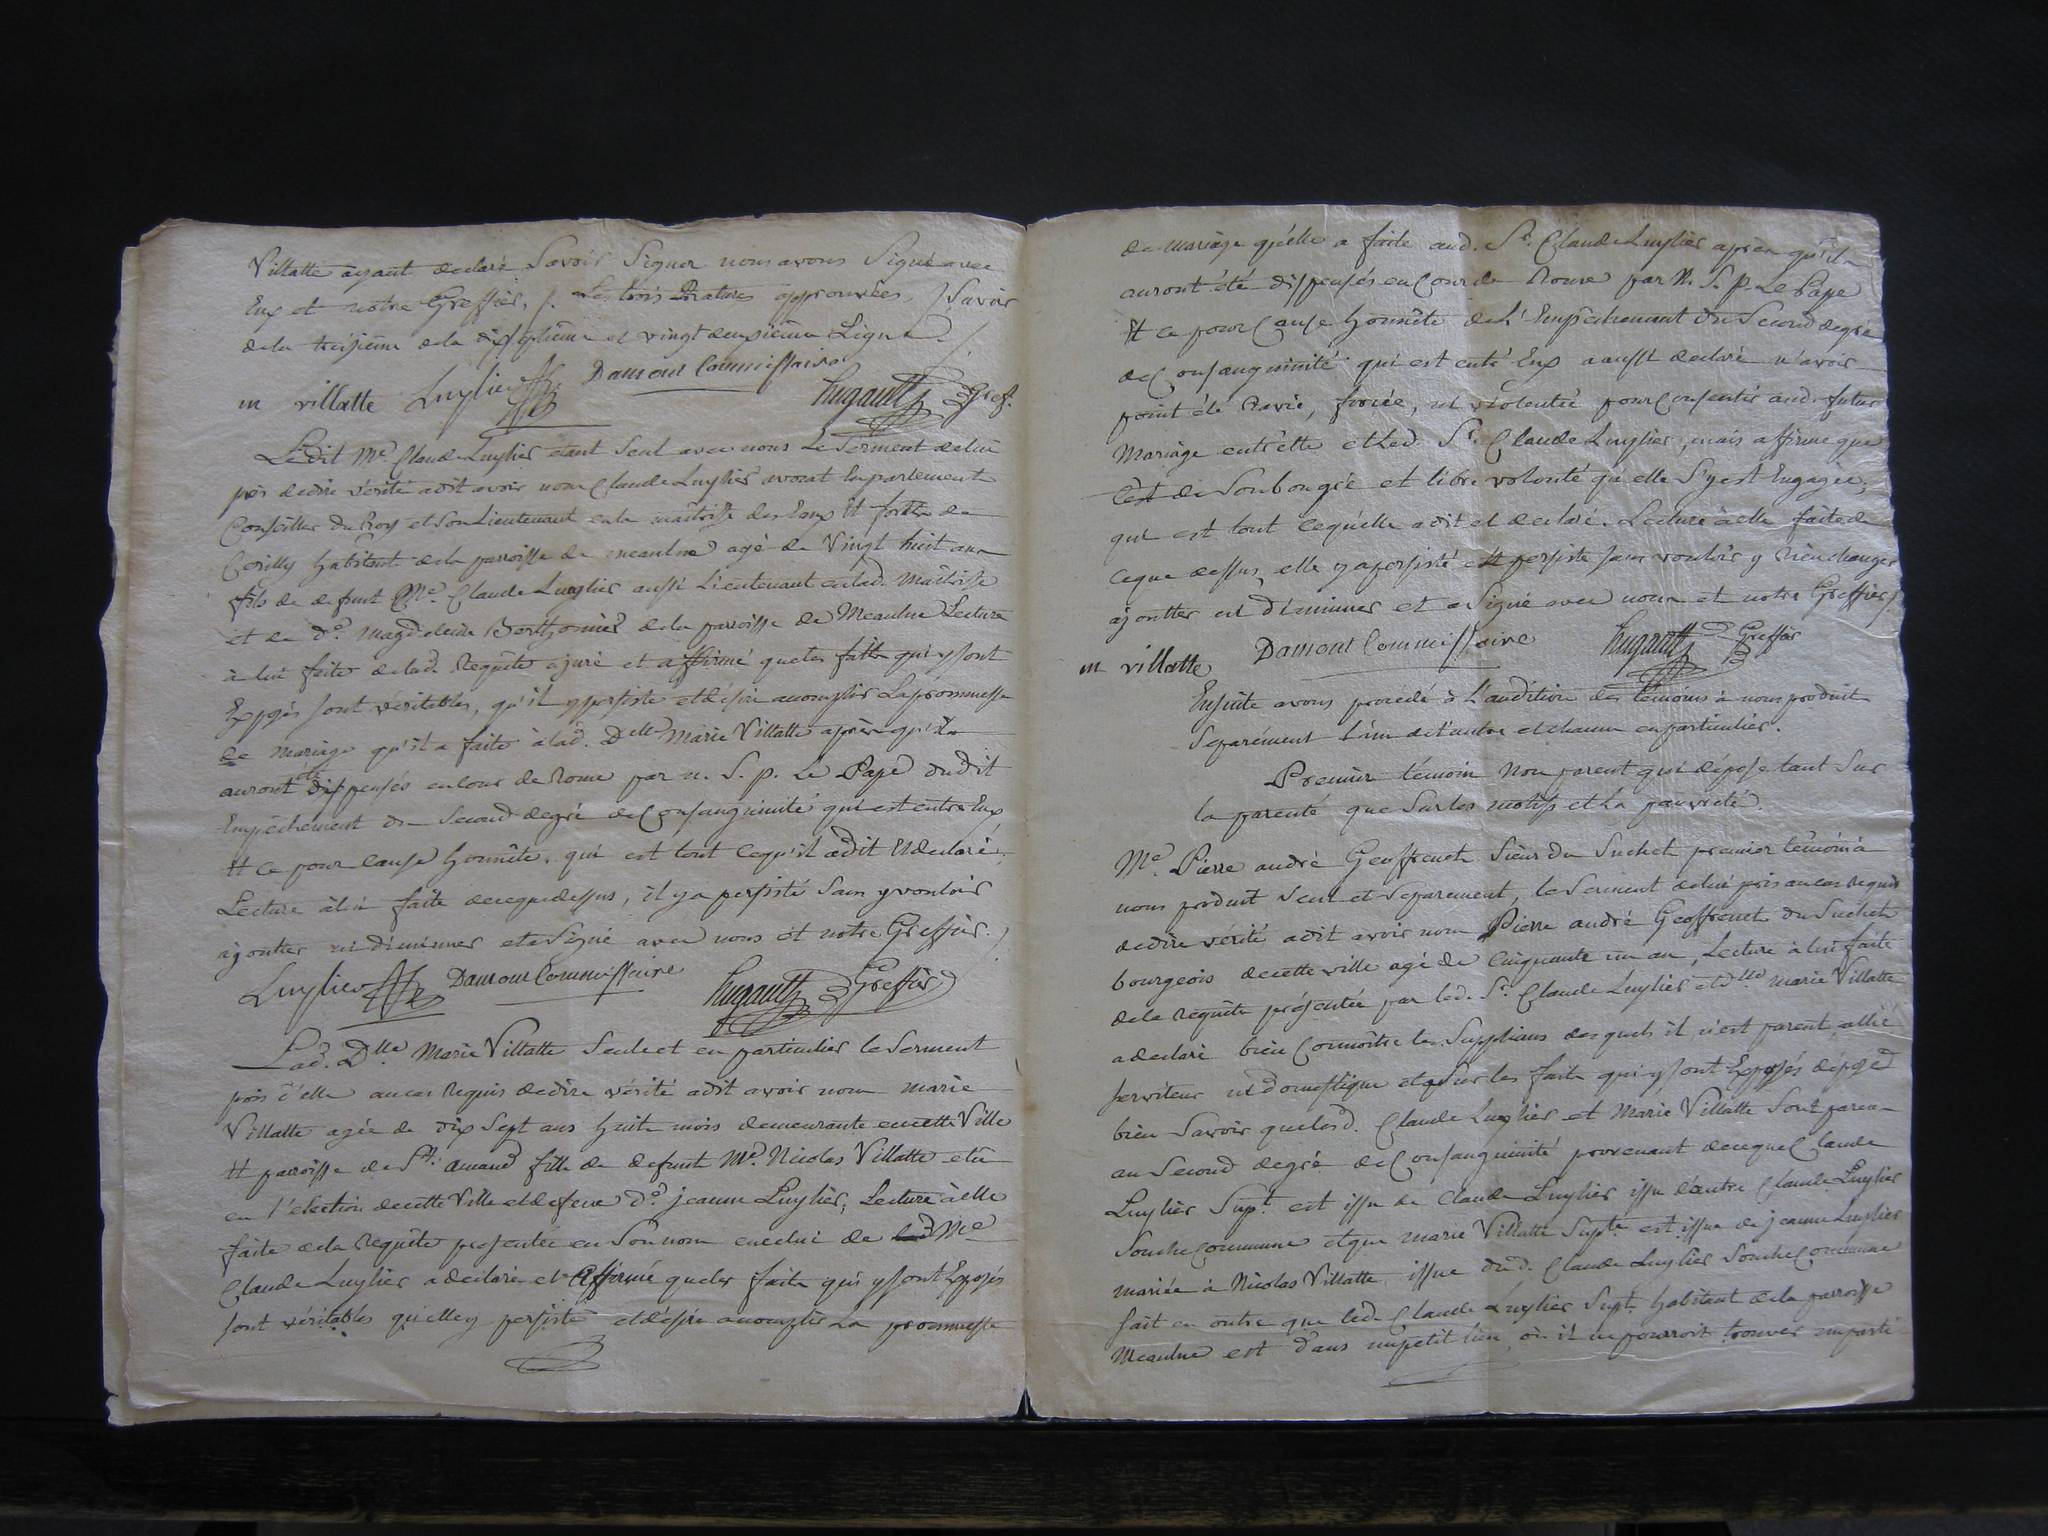 Villatte ayant declaré Savoir Signer nous avons Signé avec
Eux et notre Greffier, /. Les trois Ratures approuvées, / Savoir
de la treizieme de la dixseptième et vingt deuxieme Ligne /
m villatte Luylier Damour Commissaire hugault Gref.
Ledit Me. Claude Luylier étant Seul avec nous Le Serment de lui
pris de dire vérité a dit avoir nom Claude Luylier avocat En parlement
Conseiller du Roy et Son Lieutenant en la maîtrisse des Eaux Et forêts de
Cerilly habitant de la parroisse de meaulne agé de Vingt huit ans
fils de defunt Me. Claude Luylier aussi Lieutenant en lad. Maîtrisse
et de De. Magdeleine Berthomier de la parroisse de Meaulne Lecture
à lui faite de lad. Requête a juré et affirmé que les faits qui y sont
Exposés sont véritables, qu'il y persiste et désire accomplir La prommesse
de mariage qu'il a faite à lad. Delle Marie Villatte après qu'ils
auront été dispensés en Cour de Rome par n. S. p. Le Pape dudit
Empêchement du Second degré de Consanguinité qui est entre Eux
Et ce pour cause honnête. qui est tout ce qu'il a dit Et declaré,
Lecture à lui faite de ce que dessus, il y a persisté Sans y vouloir
ajoutter ni diminuer et a Signé avec nous et notre Greffier. /
Luylier Damour Commissaire hugault Greffier
Lad. Dlle Marie Villatte Seule et en particulier le Serment
pris d'elle au cas Requis de dire vérité a dit avoir nom marie
Villatte agée de dix Sept ans huit mois demeurante en cette Ville
Et parroisse de St. amand fille de defunt Me. Nicolas Villatte elû
en l'election de cette Ville et de feue De. jeanne Luylier, Lecture à elle
faite de la Requête presentée en Son nom en celui de led Me
Claude Luylier a declaré et affirmé que les faits qui y sont Exposés
sont véritables qu'elle y persiste et désire accomplir La prommesse
de mariage qu'elle a faite aud. Sr. Claude Luylier après qu'ils
auront été dispensés en Cour de Rome par N. S. P. Le Pape
Et ce pour Cause honnête de l'Empêchement du Second degré
de Consanguinité qui est entr'Eux a aussi declaré n'avoir
point été Ravie, forcée, ni violentée pour Consentir aud. futur
Mariage entr'elle et Led. Sr. Claude Luylier, mais affirme que
C'est de Son bon gré et libre volonté qu'elle S'y est Engagée;
qui est tout ce qu'elle a dit et declaré. Lecture à elle faite de
ce que dessus, elle y a persisté et persiste sans vouloir y rien changer
ajoutter ni diminuer et a Signé avec nous et notre Greffier /.
m villatte Damour Commissaire hugault Greffier
Ensuite avons procedé à L'audition des témoins à nous produit
Separément L'un de l'autre et chacun en particulier.
Premier témoin Non parent qui dépose tant Sur
la parenté que Sur les motifs et la pauvreté.
Me. Pierre andré Geoffrenet Sieur du Suchet premier témoin à
nous produit Seul et Separement, le Serment de lui pris au cas Requis
de dire vérité a dit avoir nom Pierre andré Geoffrenet du Suchet
bourgeois de cette ville agé de Cinquante un an, Lecture à lui faite
de la Requête présentée par led. Sr. Claude Luylier et Dlle marie Villatte
a declaré bien Connoître les Supplians desquels il n'est parent, allié
serviteur ni domestique et que Sur les faits qui y sont Exposés dépose
bien Savoir que lesd. Claude Luylier et Marie Villatte Sont parens
au Second degré de Consanguinité provenant de ce que Claude
Luylier Supt. est issu de Claude Luylier issu d'autre Claude Luylier
Souche Commune et que marie Villatte Supte est issue de jeanne Luylier
mariée à Nicolas Villatte issue dud. Claude Luylier Souche Commune
Sait en outre que led. Claude Luylier Supt. habitant de la parroisse
Meaulne est dans un petit lieu où il ne pourroit trouver un parti